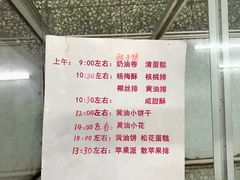 上午：9:00左右：奶油卷 清蛋糕
10:30左右：杨梅酥 核桃排
椰丝排 黄油排
10:30左右： 咸甜酥
12:00左右：黄油小饼干
14:00左右：黄油小花
14:00左右：黄油饼 松花蛋糕
13:30左右：苹果派 散苹果排